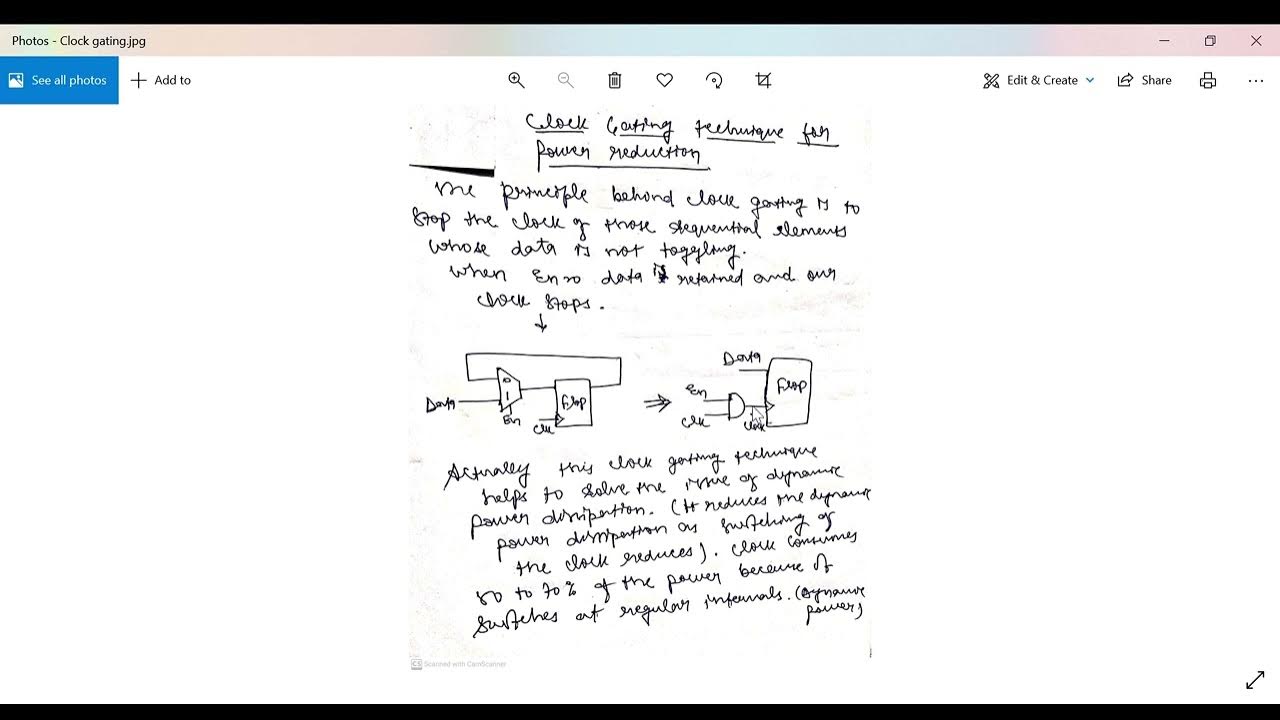 Photos - Clock gating.jpg
See all photos
Add to
Edit & Create
Share
Clock Gating technique for
Power reduction
The principle behind clock gating is to
stop the clock of those sequential elements
whose data is not toggling.
When En=0 data is retained and our
clock stops.
Data
0
1
En
Clk
Flop
Data
En
Clk
Clock
Flop
Actually this clock gating technique
helps to solve the issue of dynamic
power dissipation. (It reduces the dynamic
power dissipation as switching of
the clock reduces). Clock consumes
50 to 70% of the power because it
switches at regular intervals. (dynamic
power)
CS Scanned with CamScanner